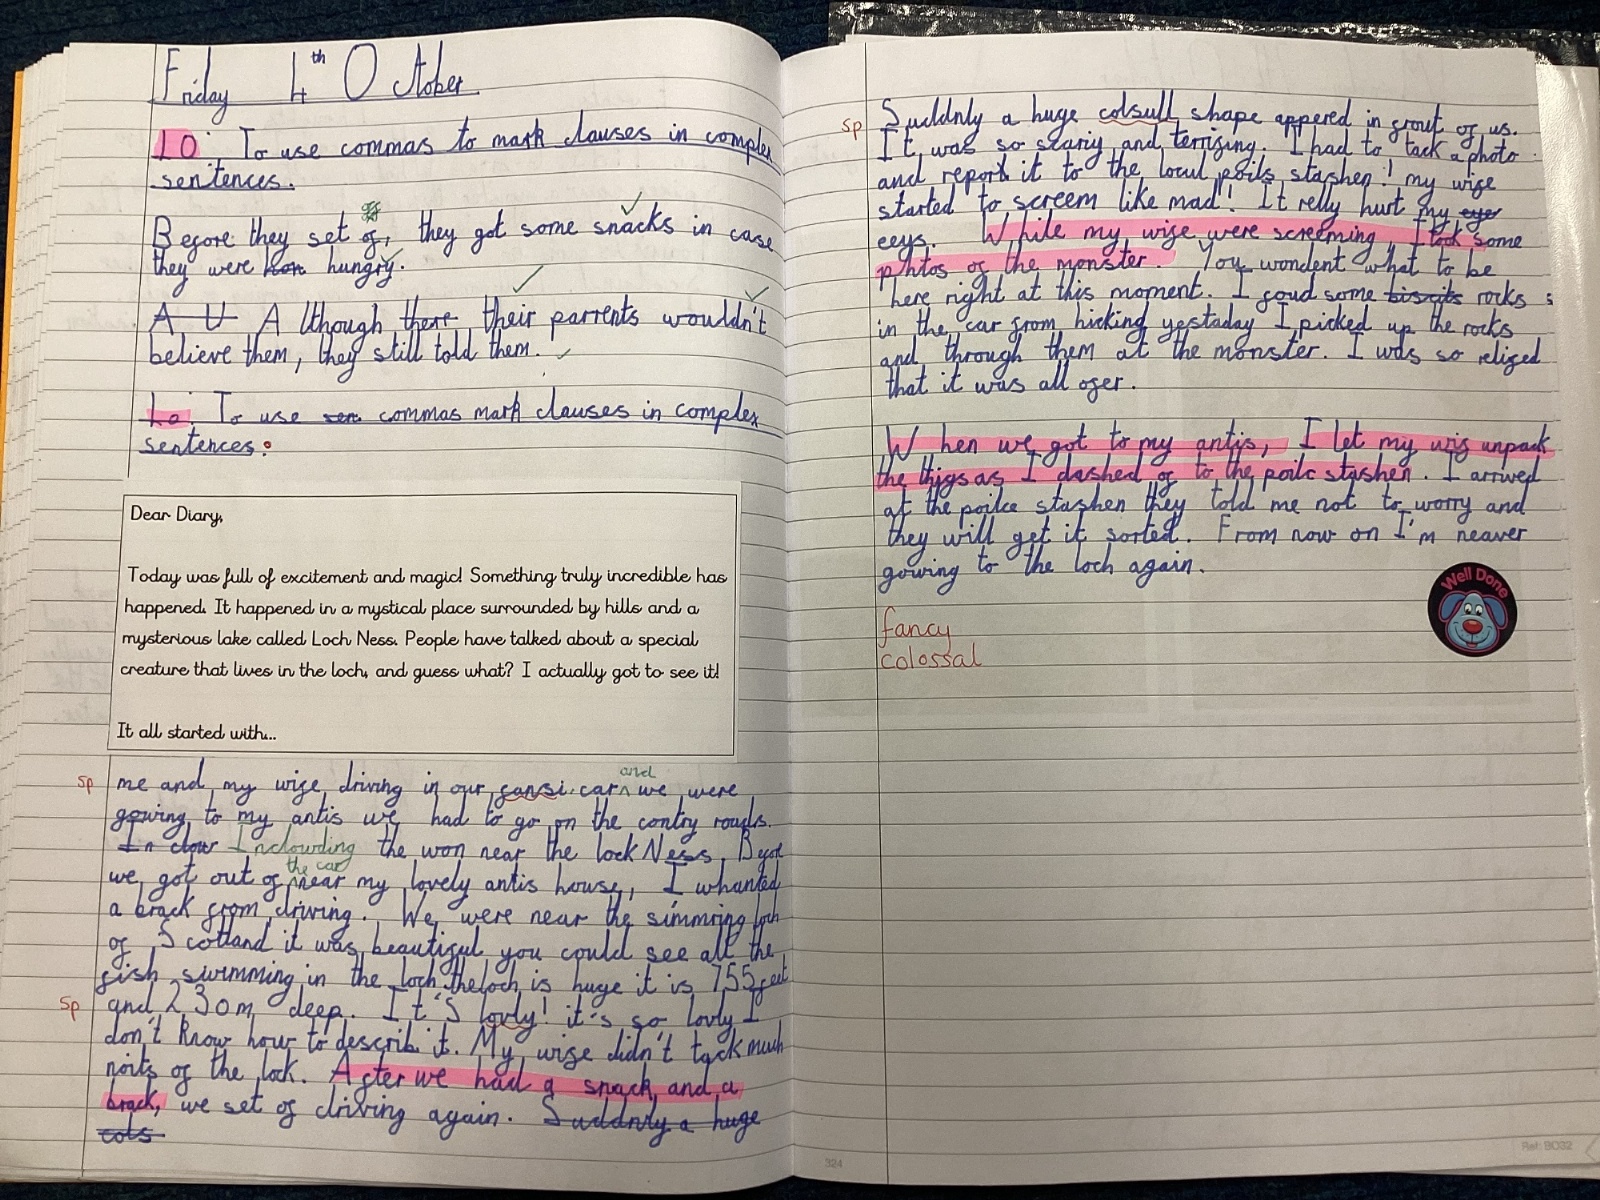 Friday 4th October
LO: To use commas to mark clauses in complex
sentences.
Before they set of, they got some snacks in case
they were hon hungry.
A U Although there their parrents wouldn't
believe them, they still told them.
Lo: To use sen commas mark clauses in complex
sentences.
Dear Diary,
Today was full of excitement and magic! Something truly incredible has
happened. It happened in a mystical place surrounded by hills and a
mysterious lake called Loch Ness. People have talked about a special
creature that lives in the loch, and guess what? I actually got to see it!
It all started with...
sp me and my wife driving in our fansi car and we were
gowing to my antis we had to go on the contry roads.
In clow Inclowding the won near the lock Ness. Befor
we got out of the car near my lovely antis house, I whanted
a brack from driving. We were near the simmring loch
of Scotland it was beautiful you could see all the
fish swimming in the loch. the loch is huge it is 755 feet
sp and 230m deep. It's lovly! it's so lovly I
don't know how to describ it. My wife didn't tack much
noits of the lock. After we had a snack and a
brack, we set of driving again. Suddnly a huge
cols
Suddnly a huge colsull shape appered in frout of us.
sp It was so scariy and terrifing. I had to tack a photo
and report it to the locul poils stashen! my wife
started to screem like mad! It relly hurt my eye
eeys. While my wife were screeming, I took some
phtos of the monster. You wondent what to be
here right at this moment. I foud some biscits rocks
in the car from hicking yestaday I picked up the rocks
and through them at the monster. I was so relifed
that it was all ofer.
When we got to my antis, I let my wif unpack
the thigs as I dashed of to the poilc stashen. I arrived
at the poilce stashen they told me not to worry and
they will get it sorted. From now on I'm neaver
gowing to the loch again.
Well Done
fancy
colossal
324
Ref: BO32